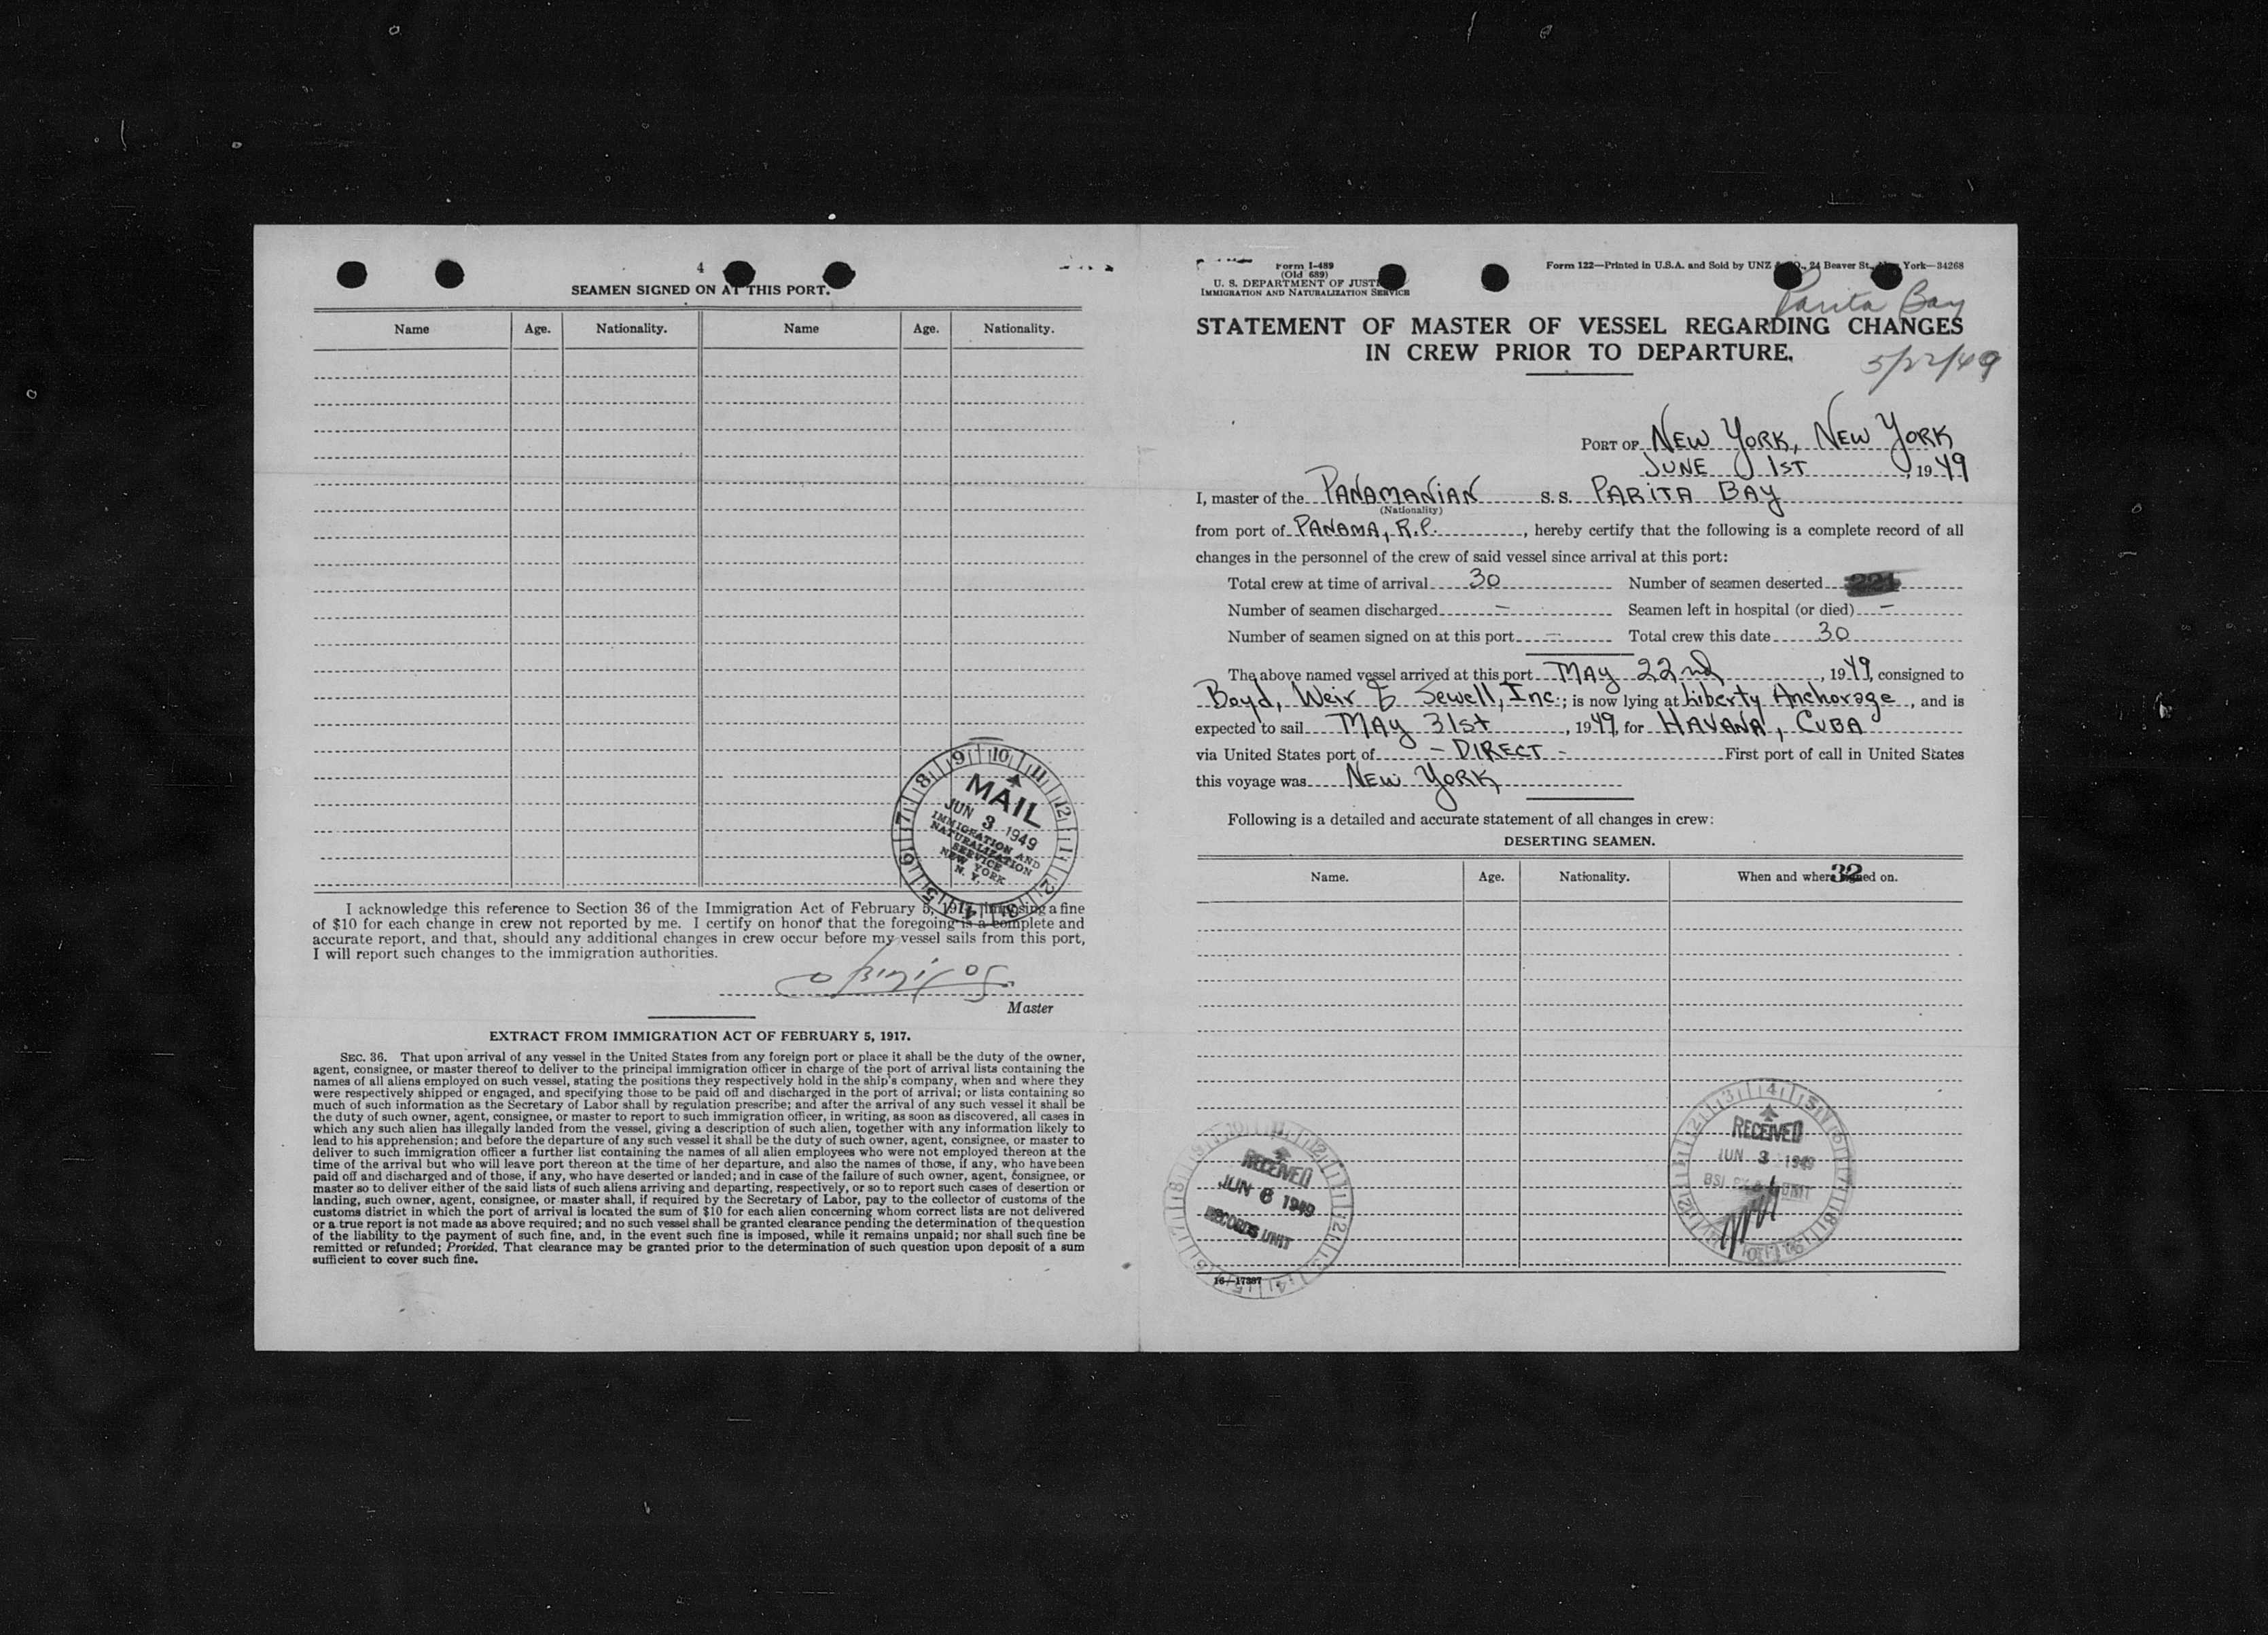 4
SEAMEN SIGNED ON AT THIS PORT.
Name Age. Nationality. Name Age. Nationality.
9 10 11 12 1 2 3 4 5 6 7 8
MAIL
JUN 3 1949
IMMIGRATION AND
NATURALIZATION
SERVICE
NEW YORK
N. Y.
I acknowledge this reference to Section 36 of the Immigration Act of February 5, 1917, imposing a fine
of $10 for each change in crew not reported by me. I certify on honor that the foregoing is a complete and
accurate report, and that, should any additional changes in crew occur before my vessel sails from this port,
I will report such changes to the immigration authorities.
Master
EXTRACT FROM IMMIGRATION ACT OF FEBRUARY 5, 1917.
SEC. 36. That upon arrival of any vessel in the United States from any foreign port or place it shall be the duty of the owner,
agent, consignee, or master thereof to deliver to the principal immigration officer in charge of the port of arrival lists containing the
names of all aliens employed on such vessel, stating the positions they respectively hold in the ship's company, when and where they
were respectively shipped or engaged, and specifying those to be paid off and discharged in the port of arrival; or lists containing so
much of such information as the Secretary of Labor shall by regulation prescribe; and after the arrival of any such vessel it shall be
the duty of such owner, agent, consignee, or master to report to such immigration officer, in writing, as soon as discovered, all cases in
which any such alien has illegally landed from the vessel, giving a description of such alien, together with any information likely to
lead to his apprehension; and before the departure of any such vessel it shall be the duty of such owner, agent, consignee, or master to
deliver to such immigration officer a further list containing the names of all alien employees who were not employed thereon at the
time of the arrival but who will leave port thereon at the time of her departure, and also the names of those, if any, who have been
paid off and discharged and of those, if any, who have deserted or landed; and in case of the failure of such owner, agent, consignee, or
master so to deliver either of the said lists of such aliens arriving and departing, respectively, or so to report such cases of desertion or
landing, such owner, agent, consignee, or master shall, if required by the Secretary of Labor, pay to the collector of customs of the
customs district in which the port of arrival is located the sum of $10 for each alien concerning whom correct lists are not delivered
or a true report is not made as above required; and no such vessel shall be granted clearance pending the determination of the question
of the liability to the payment of such fine, and, in the event such fine is imposed, while it remains unpaid; nor shall such fine be
remitted or refunded; Provided. That clearance may be granted prior to the determination of such question upon deposit of a sum
sufficient to cover such fine.
Form I-489
(Old 689)
U. S. DEPARTMENT OF JUSTICE
IMMIGRATION AND NATURALIZATION SERVICE
Form 122—Printed in U.S.A. and Sold by UNZ & CO., 24 Beaver St., New York—34268
Parita Bay
STATEMENT OF MASTER OF VESSEL REGARDING CHANGES
IN CREW PRIOR TO DEPARTURE.
5/22/49
PORT OF NEW YORK, NEW YORK
JUNE 1ST, 1949
I, master of the PANAMANIAN S. S. PARITA BAY
(Nationality)
from port of PANAMA, R.P., hereby certify that the following is a complete record of all
changes in the personnel of the crew of said vessel since arrival at this port:
Total crew at time of arrival 30 Number of seamen deserted
Number of seamen discharged – Seamen left in hospital (or died) –
Number of seamen signed on at this port – Total crew this date 30
The above named vessel arrived at this port MAY 22nd, 1949, consigned to
Boyd, Weir & Sewell, Inc.; is now lying at Liberty Anchorage, and is
expected to sail MAY 31st, 1949, for HAVANA, CUBA
via United States port of - DIRECT - First port of call in United States
this voyage was NEW YORK
Following is a detailed and accurate statement of all changes in crew:
DESERTING SEAMEN.
32
Name. Age. Nationality. When and where signed on.
RECEIVED
JUN 3 1949
RECEIVED
JUN 6 1949
RECORDS UNIT
16—17387